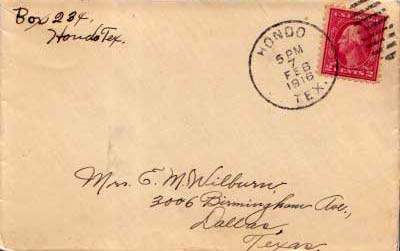 Box 234.
Hondo Tex.
HONDO
5 PM
7
FEB
1916
TEX.
2 CENTS 2
Mrs. E. M. Wilburn,
3006 Birmingham Ave.,
Dallas,
Texas.